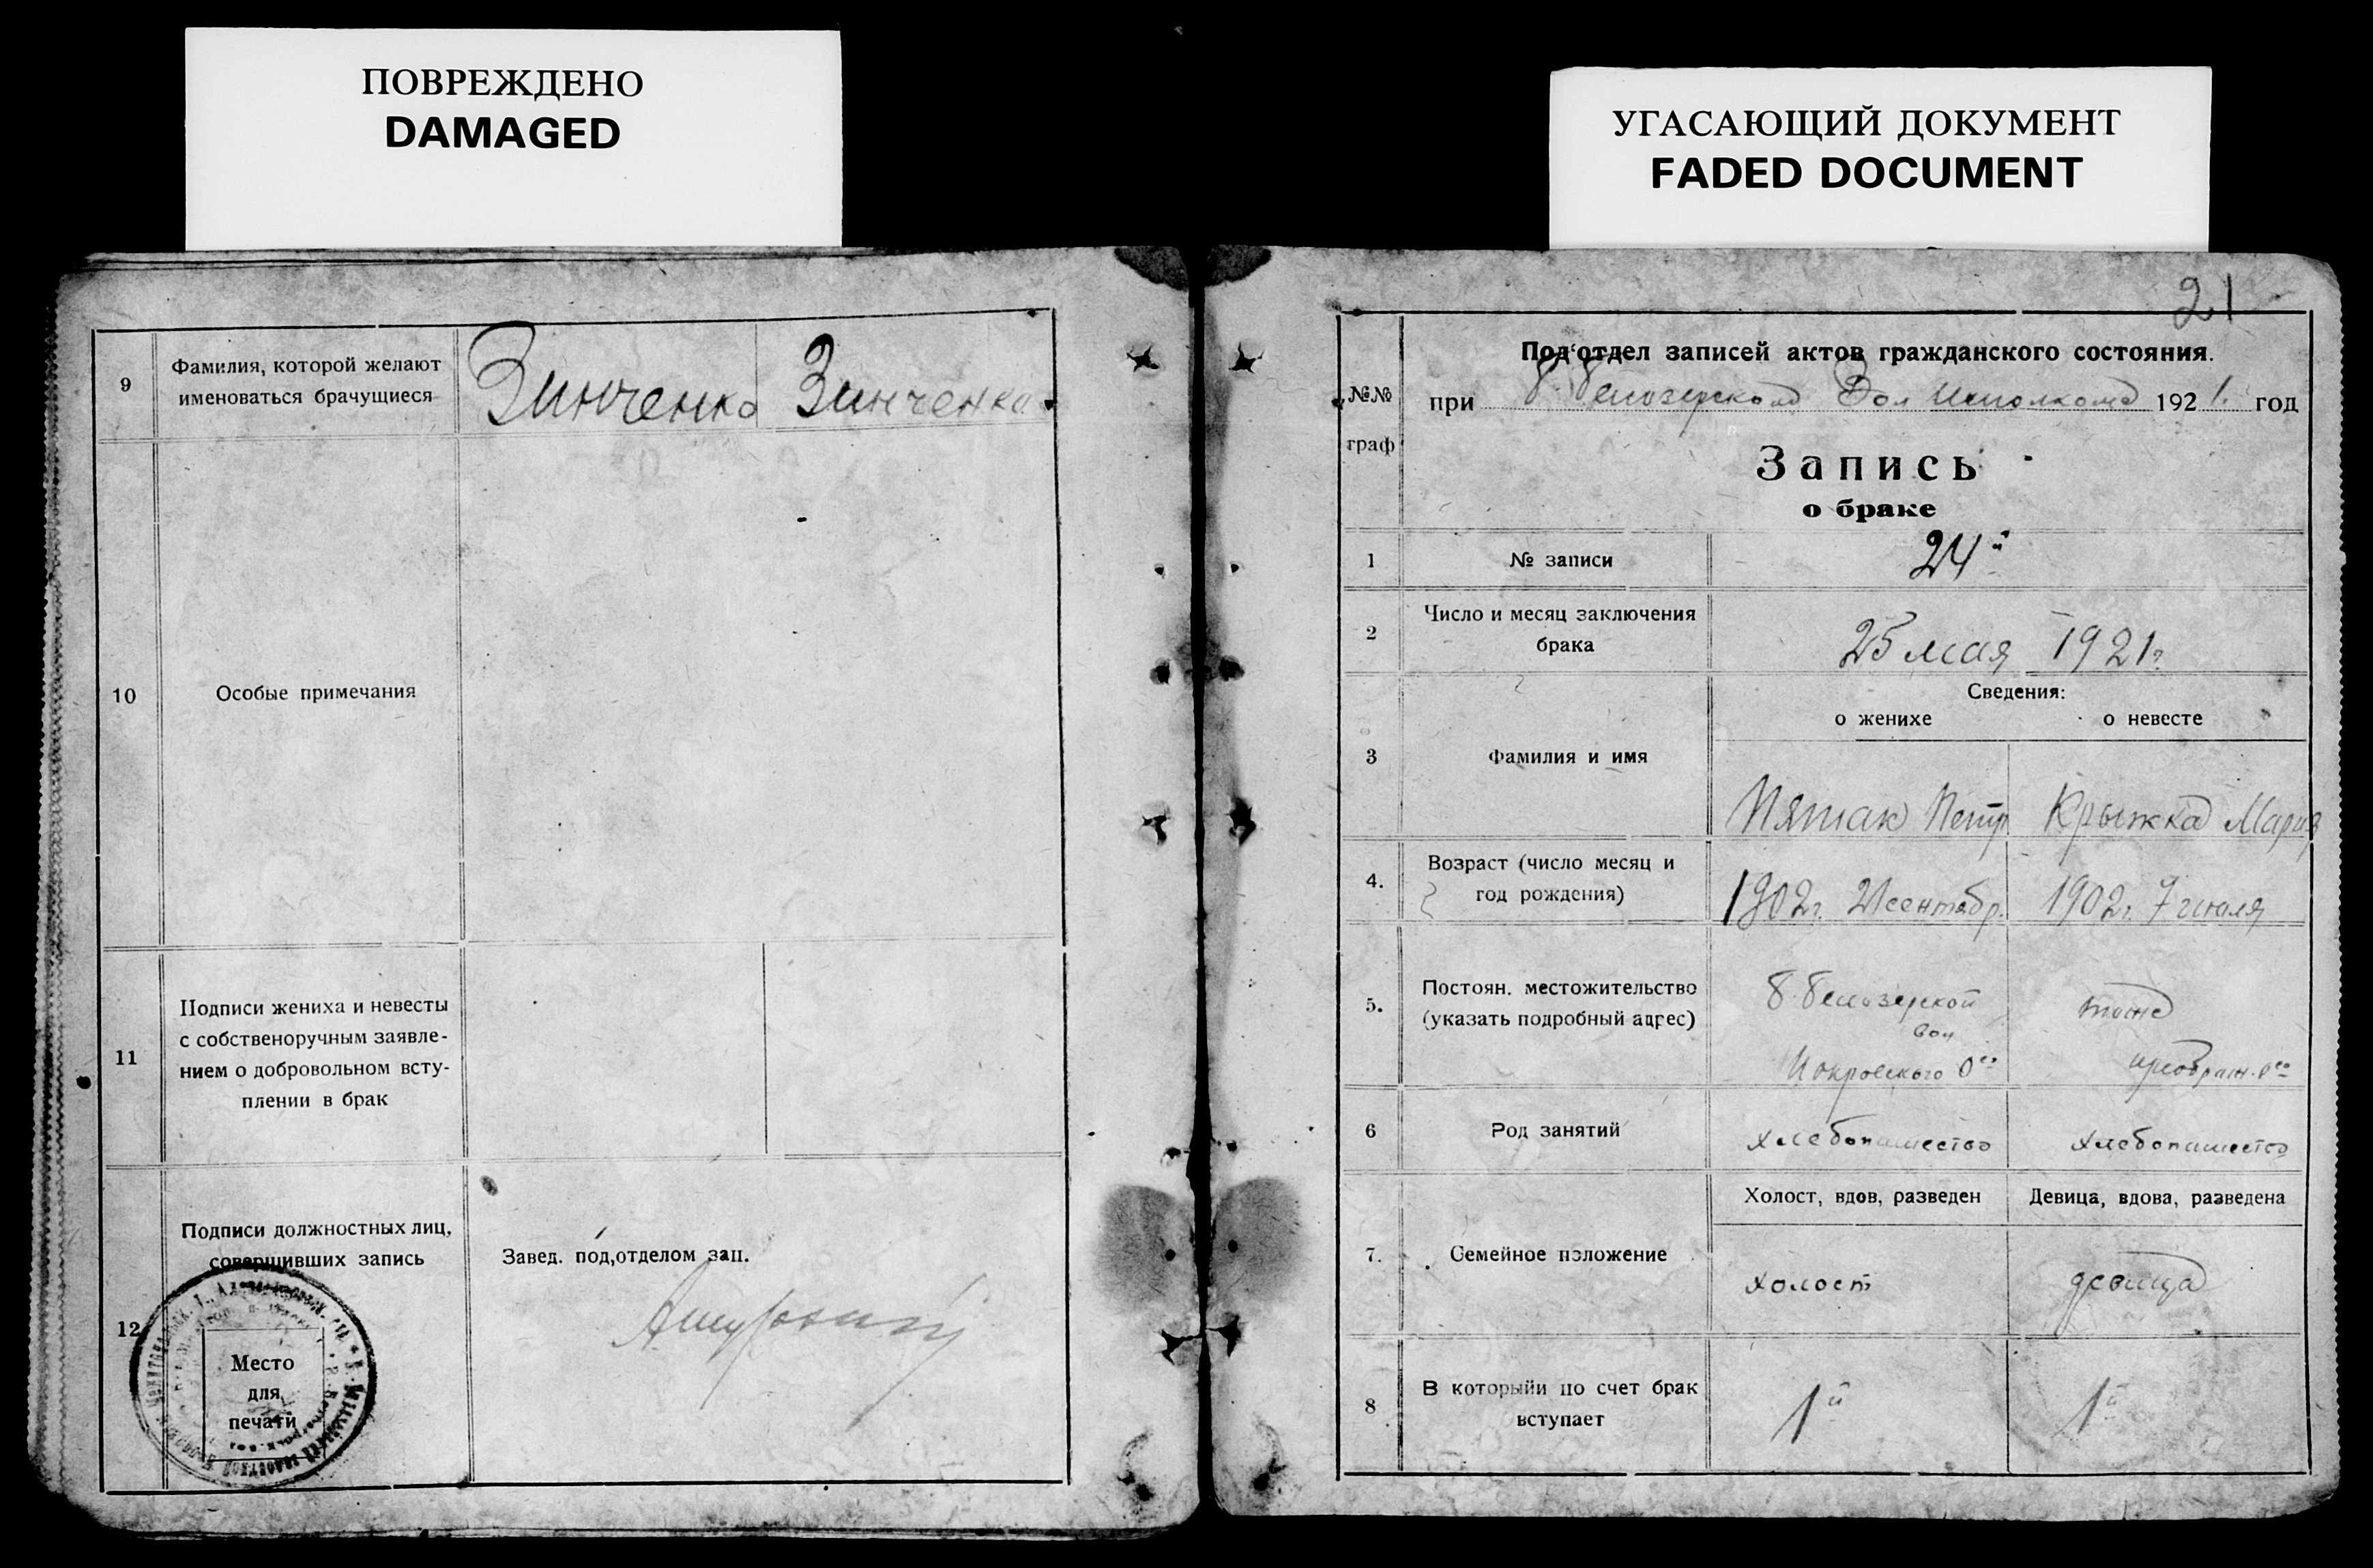 ПОВРЕЖДЕНО
DAMAGED
УГАСАЮЩИЙ ДОКУМЕНТ
FADED DOCUMENT
9
Фамилия, которой желают
именоваться брачущиеся
Зинченко
Зинченко
10
Особые примечания
11
Подписи жениха и невесты
с собственоручным заявле-
нием о добровольном всту-
плении в брак
12
Подписи должностных лиц,
совершивших запись
Завед. под,отделом зап.
Место
для
печати
21
№№
граф
Под‘отдел записей актов гражданского состояния.
при Б Белозерском Вол Исполкоме 1921. год
Запись
о браке
1
№ записи
24й
2
Число и месяц заключения
брака
25 мая 1921г.
Сведения:
о женихе
о невесте
3
Фамилия и имя
Пятак Петр
Крыжка Мария
4.
Возраст (число месяц и
год рождения)
1902г. 21 сентябр.
1902г. 7 июля
5.
Постоян. местожительство
(указать подробный адрес)
Б Белозерской
вол
Покровского Ова
тоже
преображ. ова
6
Род занятий
хлебопашество
хлебопашество
7.
Семейное положение
Холост, вдов, разведен
Девица, вдова, разведена
холост
девица
8
В которыйи по счет брак
вступает
1й
1й